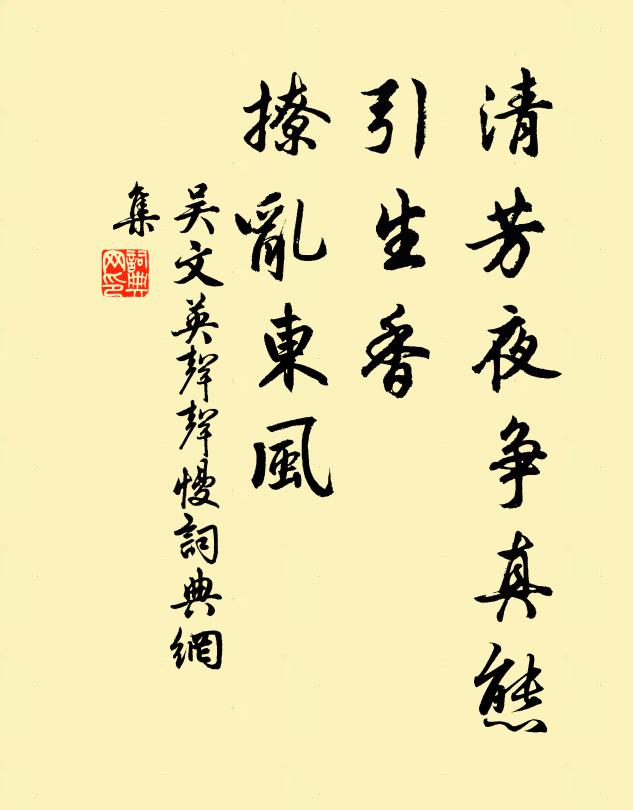 清芳夜争真態
引生香
撩亂東風
吴文英聲聲慢詞典網
集
詞典網印